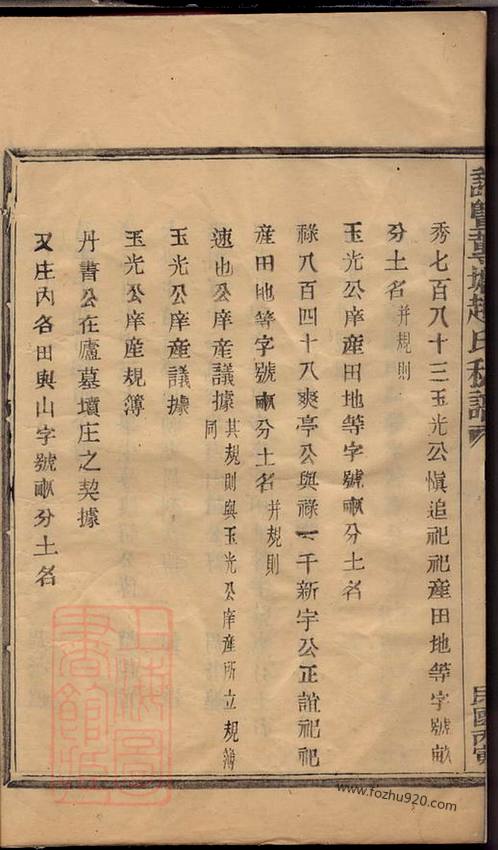 秀七百八十三玉光公愼追祀祀產田地等字號畝
分土名并規則
玉光公庠產田地等字號畝分土名
祿八百四十八爽亭公與祿一千新宇公正誼祀祀
產田地等字號畝分土名并規則
速也公庠產議據其規則與玉光公庠產所立規簿
同
玉光公庠產議據
玉光公庠產規簿
丹書公在廬墓墳庄之契據
又庄內各田與山字號畝分土名
趙氏
民國丙寅
上海圖書館藏
www.fozhu920.com